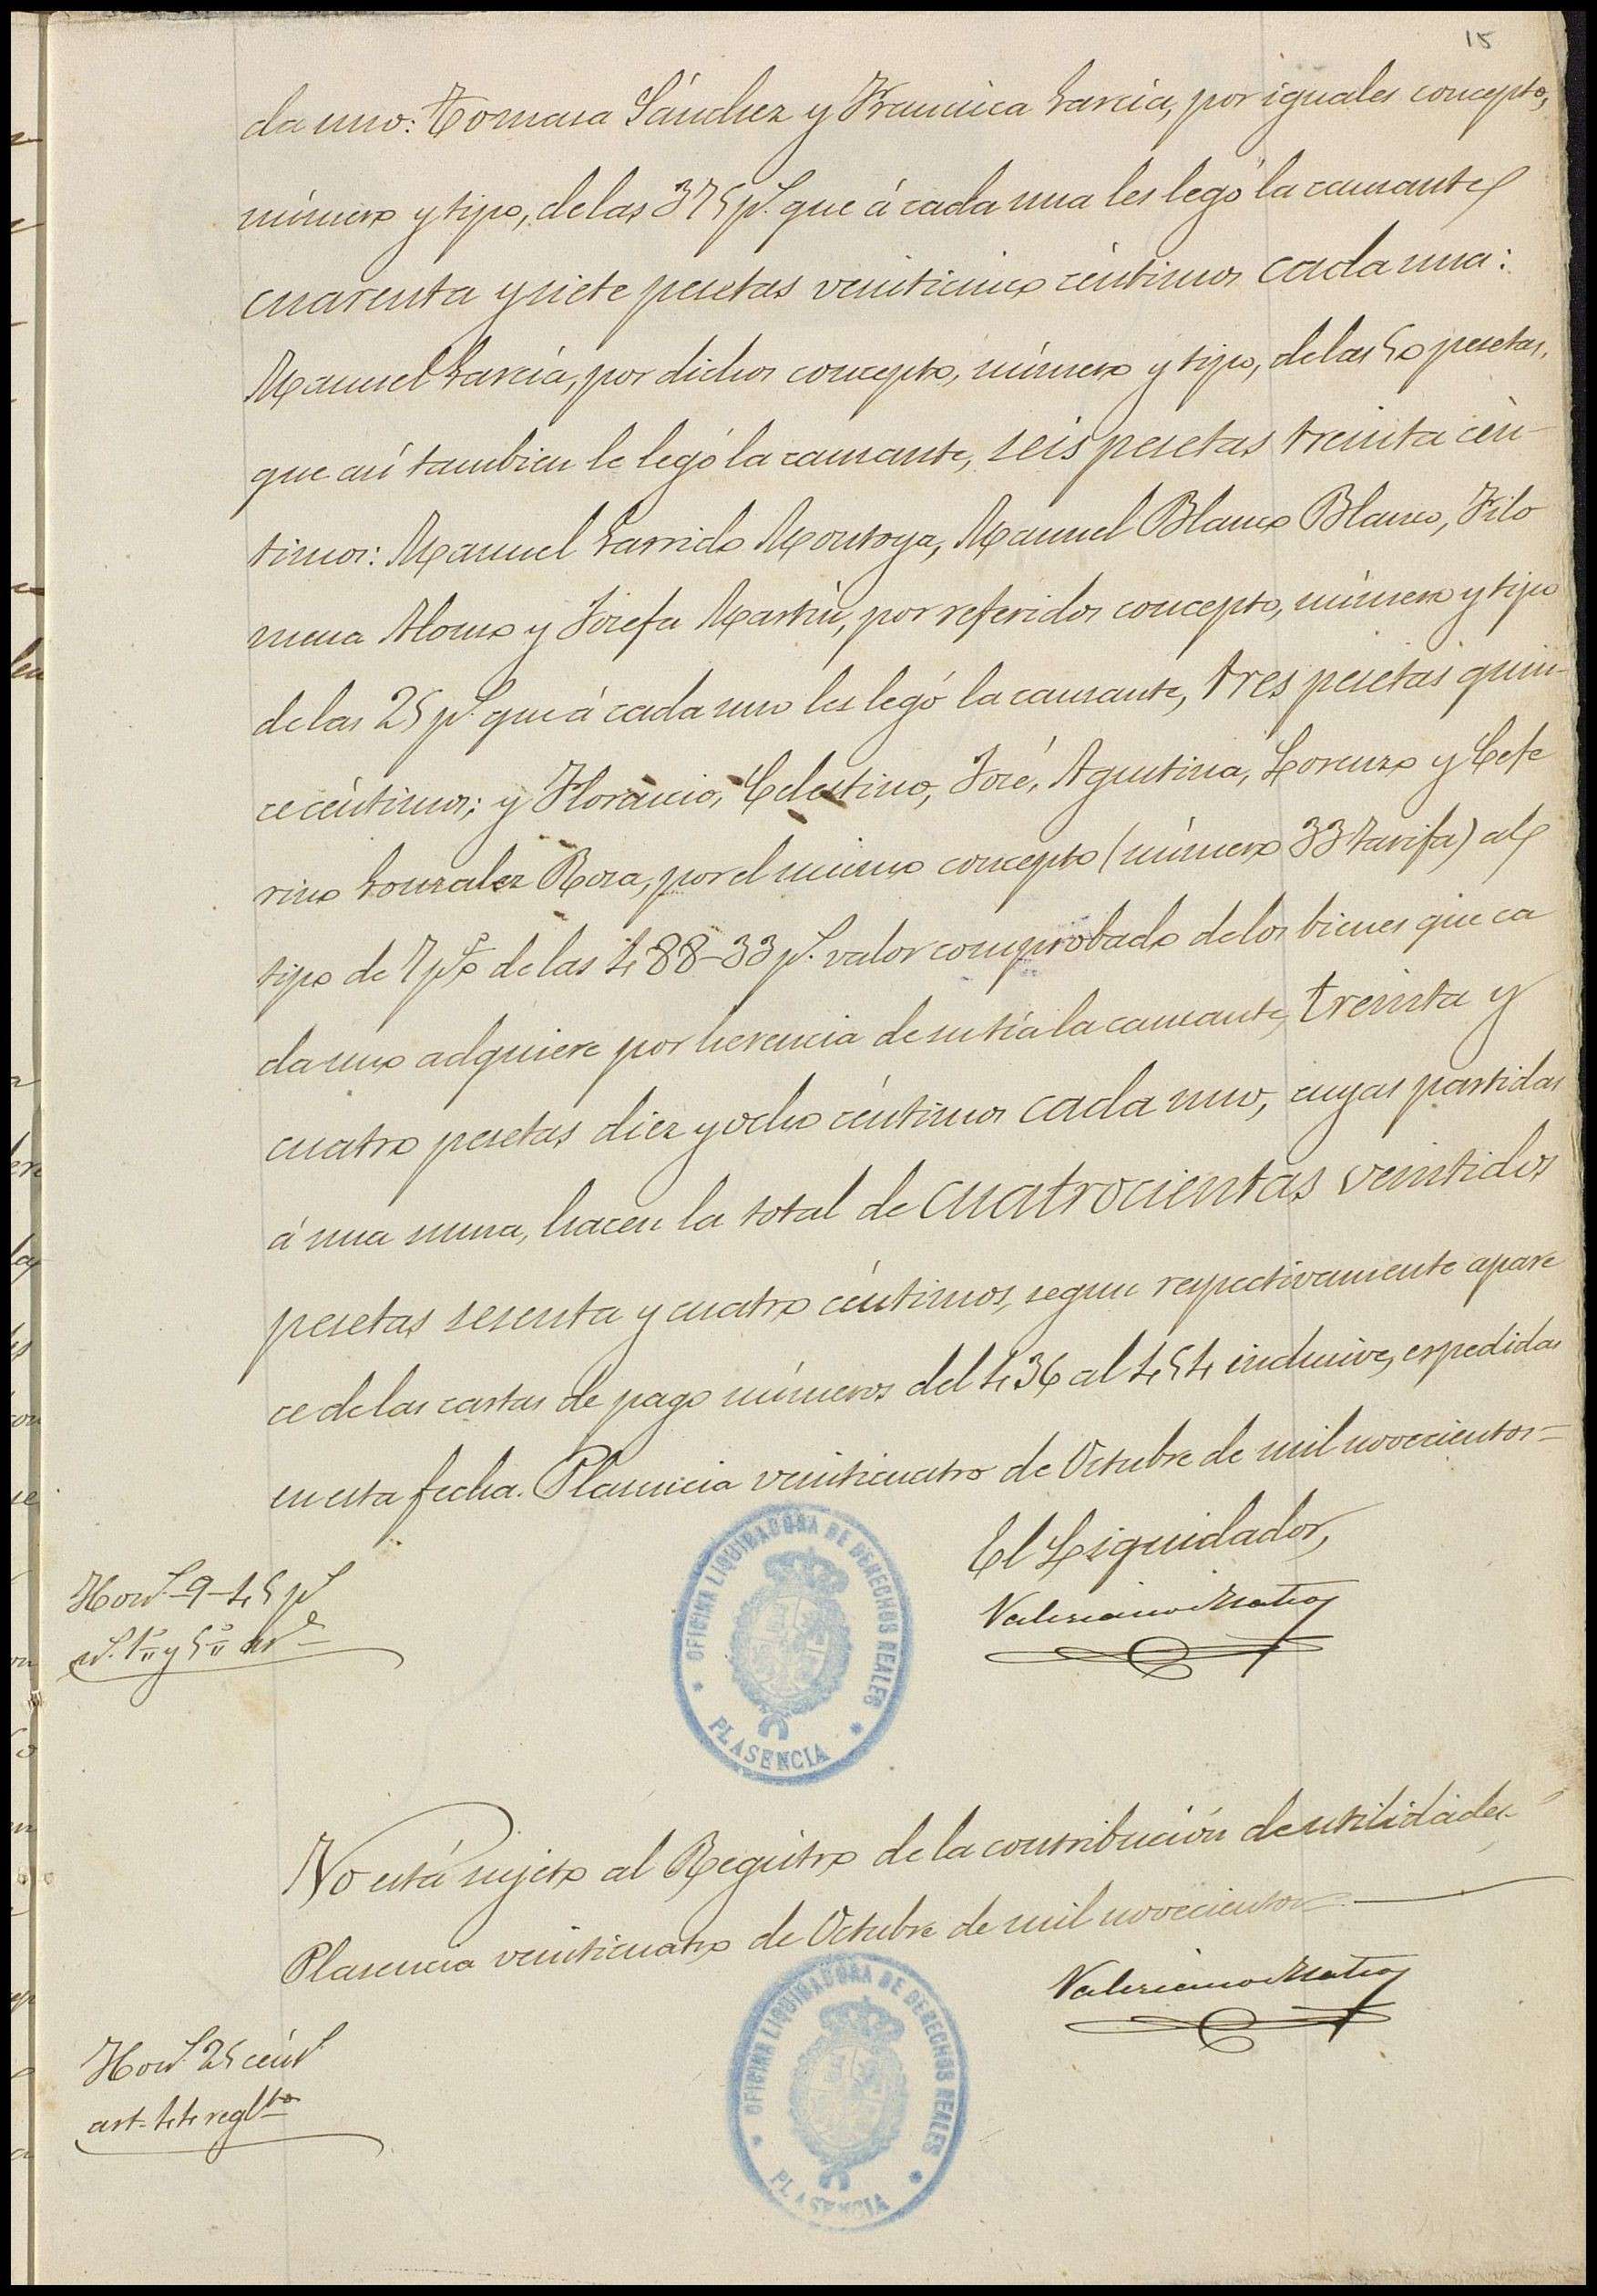 15
da uno: Tomasa Sánchez y Francisca García, por iguales concepto,
número y tipo, de las 375 ps. que á cada una les legó la causante
cuarenta y siete pesetas veinticinco céntimos cada una:
Manuel García, por dichos concepto, número y tipo, de las 50 pesetas,
que así tambien le legó la causante, seis pesetas treinta cén-
timos: Manuel Garrido Montoya, Manuel Blanco Blanco, Filo
mena Alonso y Josefa Martín, por referidos concepto, número y tipo
de las 25 ps. que á cada uno les legó la causante, tres pesetas quin-
ce céntimos; y Florencio, Celestino, José, Agustina, Lorenzo y Cefe
rino Gonzalez Rosa, por el mismo concepto (número 33 tarifa) al
tipo de 7 p% de las 488-33 ps. valor comprobado de los bienes que ca
da uno adquiere por herencia de su tía la causante, treinta y
cuatro pesetas diez y ocho céntimos cada uno, cuyas partidas
á una suma, hacen la total de cuatrocientas veintidos
pesetas sesenta y cuatro céntimos, segun respectivamente apare
ce de las cartas de pago números del 436 al 454 inclusive, espedidas
en esta fecha. Plasencia veinticuatro de Octubre de mil novecientos=
El Liquidador,
Valeriano Mateos
Hons. 9-45 ps
OFICINA LIQUIDADORA DE DERECHOS REALES
* PLASENCIA *
No está sujeto al Registro de la contribución de utilidades.
Plasencia veinticuatro de Octubre de mil novecientos=
Valeriano Mateos
Hons. 25 cénts.
art. 44 reglto
OFICINA LIQUIDADORA DE DERECHOS REALES
* PLASENCIA *